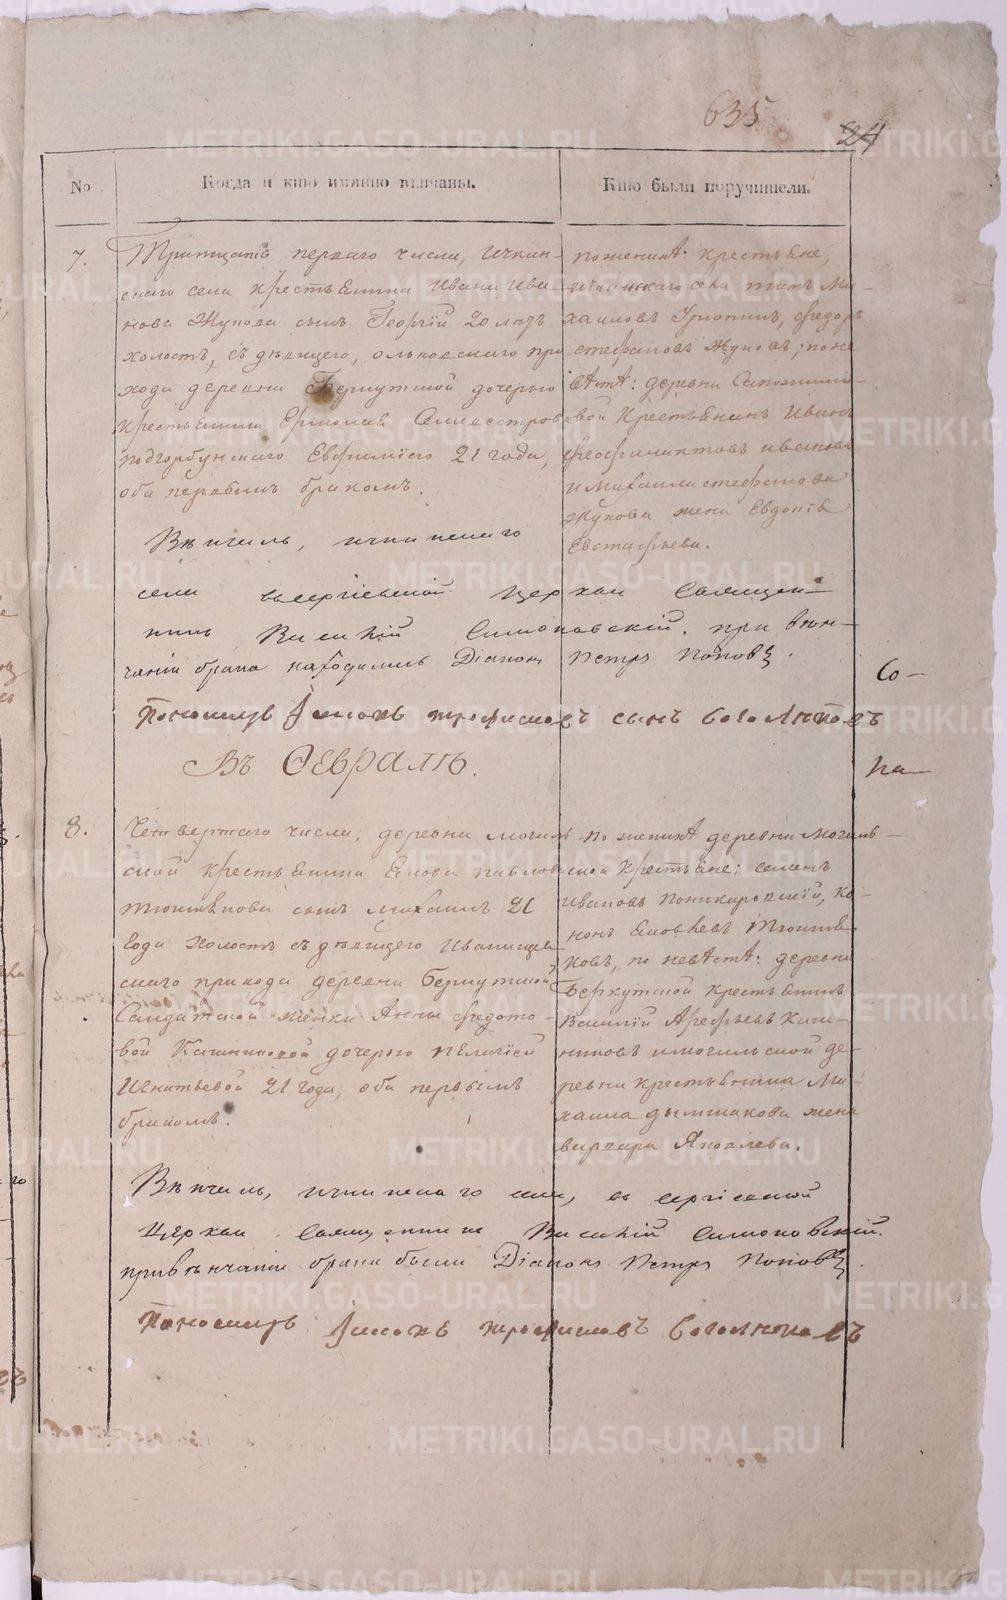 635
24
№
Когда и кто имянно вѣнчаны.
Кто были поручители.
7.
Тритцать перваго числа, Ичкин-
скаго села крестьянина Ивана Ива-
нова Жукова сынъ Георгій 20 лѣтъ
холостъ, съ дѣвицею, ольховскаго при
хода деревни Беркутской дочерью
крестьянина Ермолая Селивестрова
подгорбунскаго Евфиміею 21 года,
оба первымъ бракомъ.
по женихѣ: крестьяне,
Ичкинскаго села титъ Ми-
хаиловъ, федоръ
стефановъ Жуковъ; по не
вѣстѣ: деревни
вой крестьянинъ Иванъ
феофилактовъ
и михаила стефанова
Жукова жена Евдокія
Евстафьева.
Вѣнчалъ, ичкинскаго
села въ сергіевской церкви Священ-
никъ Василій Симоновскій. при вѣн-
чаніи брака находились Діаконъ Петръ Поповъ.
Со-
Пономарь трофимовъ сынъ боголѣповъ
Въ Февралѣ.
на-
8.
Четвертаго числа, деревни могиль
ской крестьянина Якова павлова
тютнѣкова сынъ михаилъ 21
года холостъ съ дѣвицею Иванищев
скаго прихода деревни Беркутской
Салдатской жонки Анны федото-
вой дочерью пелагіей
Игнатьевой 21 года, оба первымъ
бракомъ.
по женихѣ деревни могиль-
ской крестьяне; семенъ
ивановъ, ко-
нонъ Яковлевъ
ковъ, по невѣстѣ: деревни
Беркутской крестьянинъ
Василій Арефьевъ
никовъ и могильской де-
ревни крестьянина Ми-
хаила дымшакова жена
варвара Яковлева.
Вѣнчалъ, ичкинскаго села, въ сергіевской
церкви Священникъ Василій Симоновскій.
при вѣнчаніи брака были Діаконъ Петръ Поповъ.
Пономарь трофимовъ боголѣповъ
METRIKI.GASO-URAL.RU